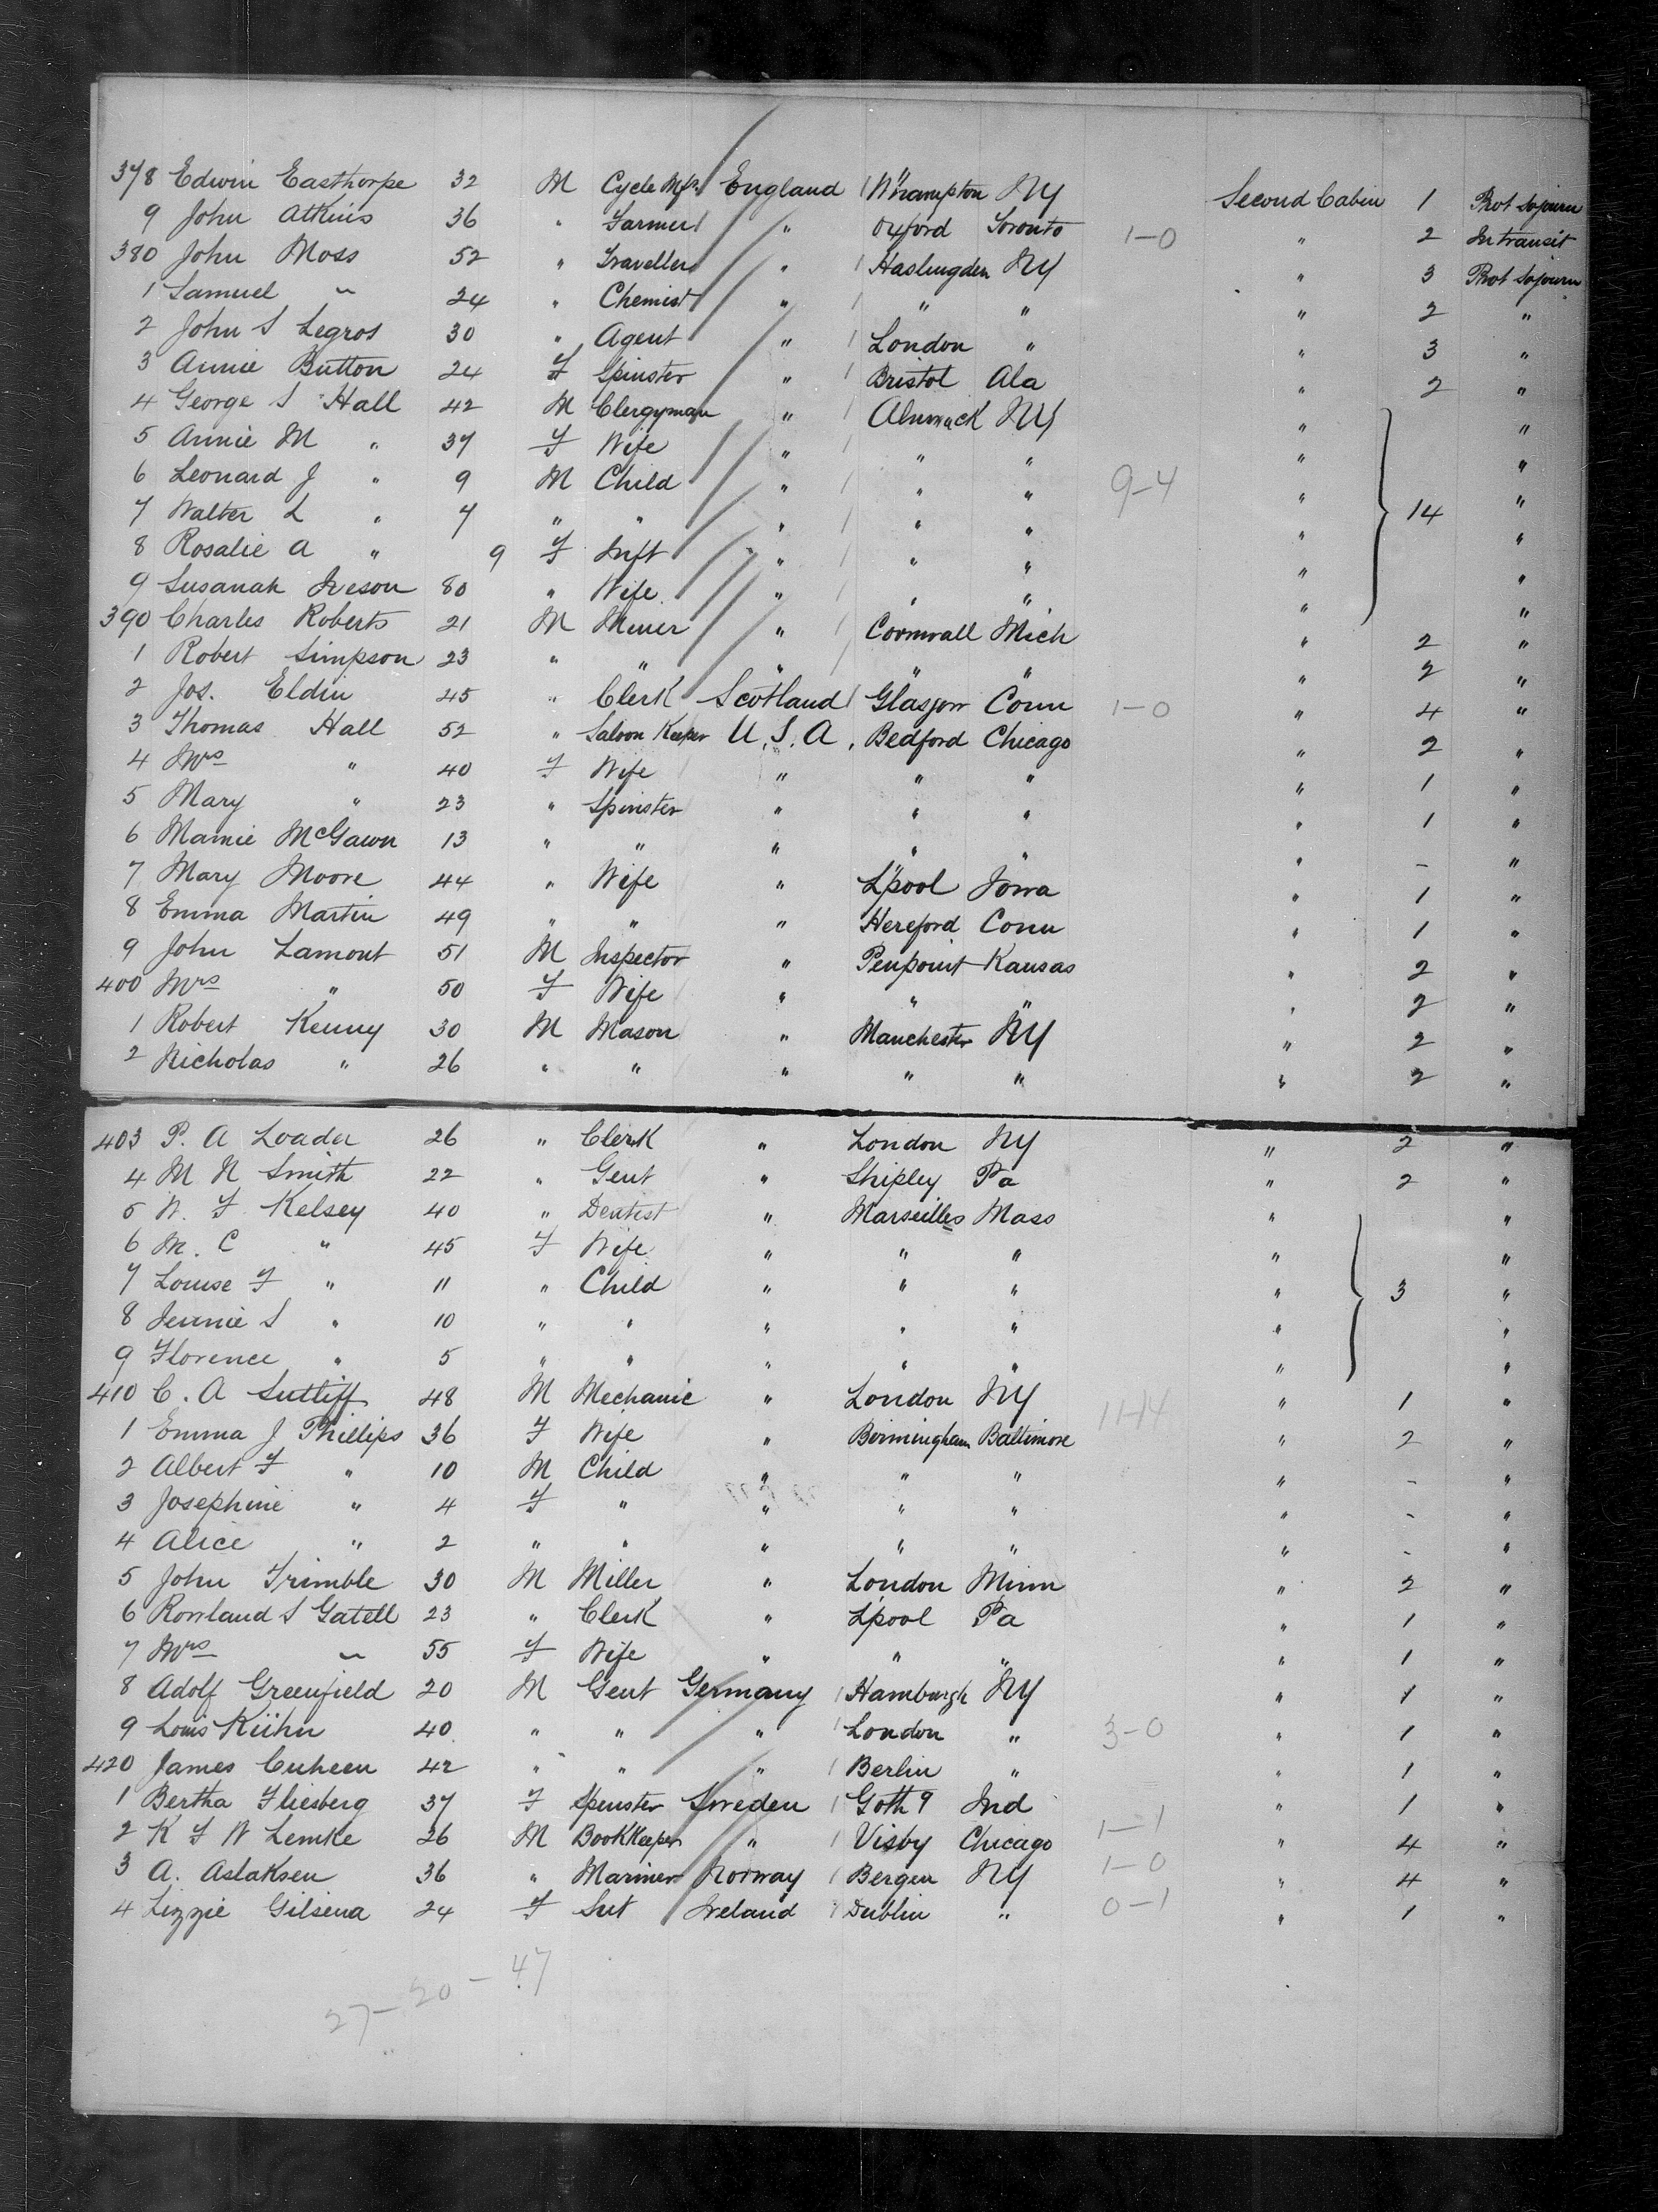 378 Edwin Easthorpe 32 M Cycle Mfr England 1 W'hampton NY Second Cabin 1 Prot Sojourn
9 John Atkins 36 " Farmer " Oxford Toronto 1-0 " 2 In transit
380 John Moss 52 " Traveller " 1 Haslingden NY " 3 Prot Sojourn
1 Samuel " 24 " Chemist " 1 " " " 2 "
2 John S Legros 30 " Agent " 1 London " " 3 "
3 Annie Button 24 F Spinster " 1 Bristol Ala " 2 "
4 George S Hall 42 M Clergyman " 1 Alnwick NY " "
5 Annie M " 37 F Wife " 1 " " " "
6 Leonard J " 9 M Child " 1 " " 9-4 " "
7 Walter L " 7 " " " 1 " " " 14 "
8 Rosalie A " 9 F Inft " 1 " " " "
9 Susanah Iveson 80 " Wife " 1 " " " "
390 Charles Roberts 21 M Miner " 1 Cornwall Mich " 2 "
1 Robert Simpson 23 " " " 1 " " " 2 "
2 Jos. Eldin 45 " Clerk Scotland 1 Glasgow Conn 1-0 " 4 "
3 Thomas Hall 52 " Saloon Keeper U.S.A. Bedford Chicago " 2 "
4 Mrs " 40 F Wife " " " " 1 "
5 Mary " 23 " Spinster " " " " 1 "
6 Mamie McGawn 13 " " " " " " - "
7 Mary Moore 44 " Wife " L'pool Iowa " 1 "
8 Emma Martin 49 " " " Hereford Conn " 1 "
9 John Lamont 51 M Inspector " Penpoint Kansas " 2 "
400 Mrs " 50 F Wife " " " " 2 "
1 Robert Kenny 30 M Mason " Manchester NY " 2 "
2 Nicholas " 26 " " " " " " 2 "
403 P. A Loader 26 " Clerk " London NY " 2 "
4 M N Smith 22 " Gent " Shipley Pa " 2 "
5 W. F. Kelsey 40 " Dentist " Marseilles Mass " "
6 M. C " 45 F Wife " " " " "
7 Louise F " 11 " Child " " " " 3 "
8 Jennie S " 10 " " " " " " "
9 Florence " 5 " " " " " " "
410 C. A Sutliff 48 M Mechanic " London NY 11-14 " 1 "
1 Emma J Phillips 36 F Wife " Birmingham Baltimore " 2 "
2 Albert F " 10 M Child " " " " - "
3 Josephine " 4 F " " " " " - "
4 Alice " 2 " " " " " " - "
5 John Trimble 30 M Miller " London Minn " 2 "
6 Rowland S Gatell 23 " Clerk " L'pool Pa " 1 "
7 Mrs " 55 F Wife " " " " 1 "
8 Adolf Greenfield 20 M Gent Germany 1 Hamburgh NY " 1 "
9 Louis Kühn 40 " " " 1 London " 3-0 " 1 "
420 James Cuheen 42 " " " 1 Berlin " " 1 "
1 Bertha Fliesberg 37 F Spinster Sweden 1 Goth g Ind " 1 "
2 K F W Lemke 26 M Bookkeeper " 1 Visby Chicago 1-1 " 4 "
3 A. Aslaksen 36 " Mariner Norway 1 Bergen NY 1-0 " 4 "
4 Lizzie Gilsena 24 F Svt Ireland 1 Dublin " 0-1 " 1 "
27-20-47